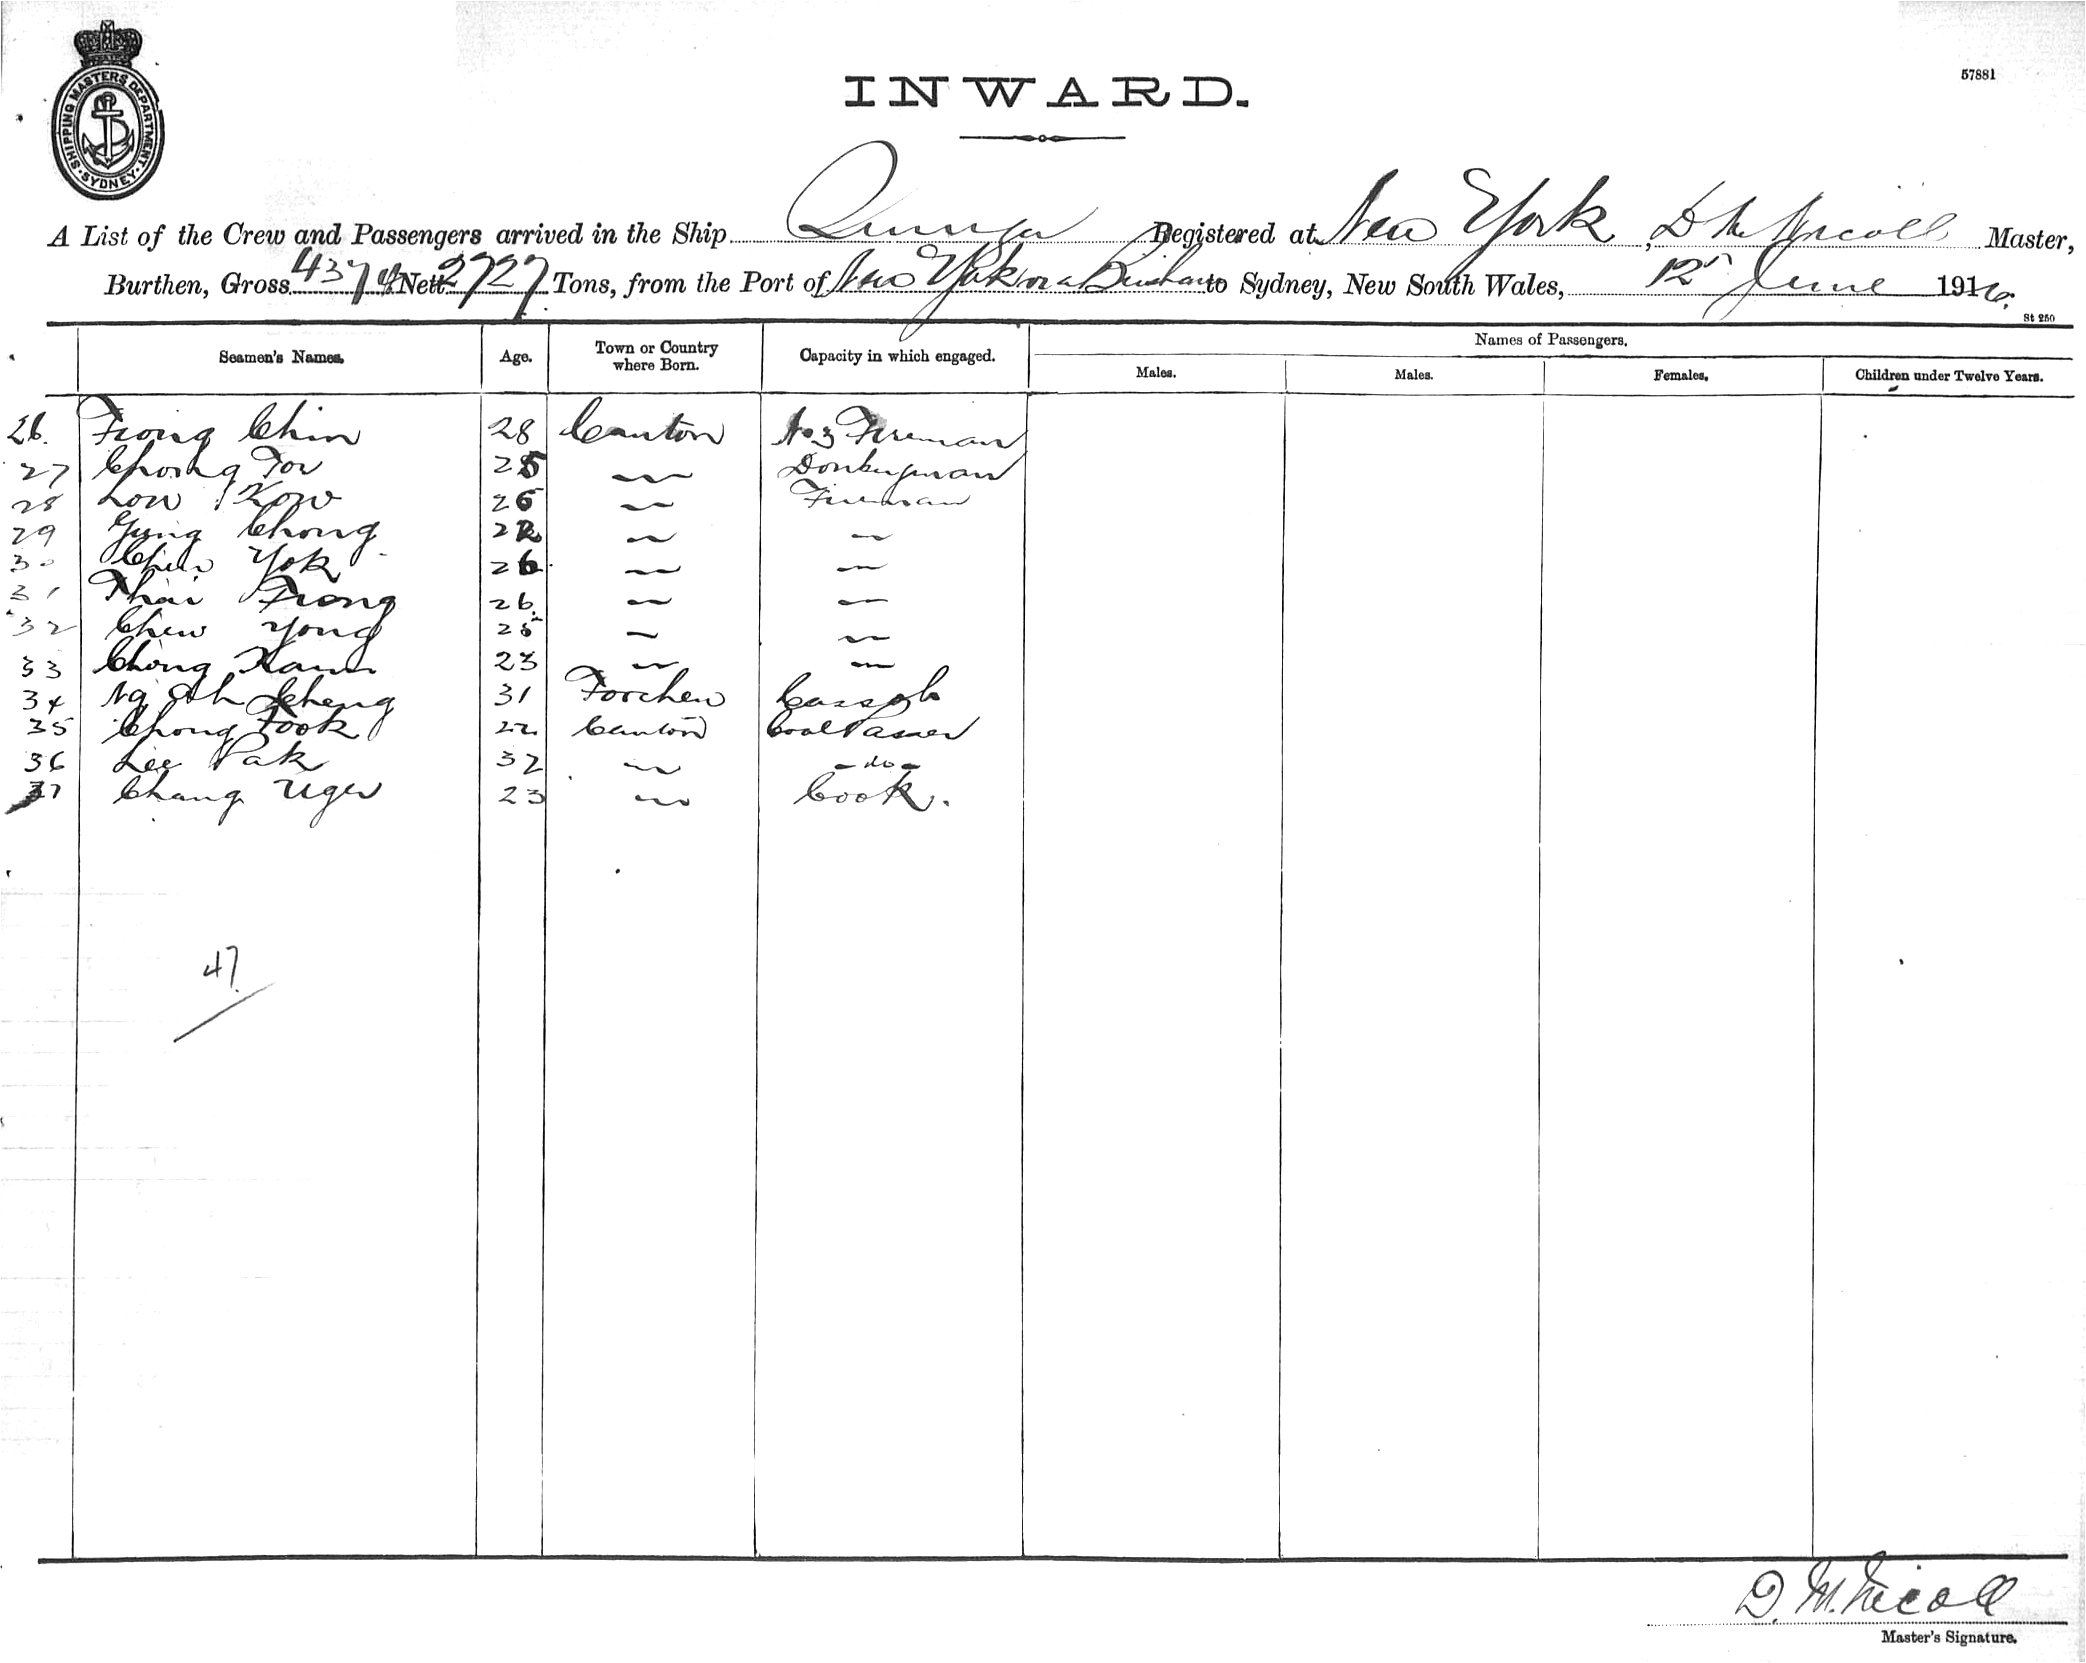 SHIPPING MASTERS DEPARTMENT
SYDNEY
57881
INWARD.
A List of the Crew and Passengers arrived in the Ship Registered at New York, D M Nicoll Master,
Burthen, Gross 4374 Nett 2727 Tons, from the Port of New York via Brisbane to Sydney, New South Wales, 12th June 1916.
St 250
Seamen's Names. Age. Town or Country where Born. Capacity in which engaged. Names of Passengers.
Males. Males. Females. Children under Twelve Years.
26. Fiong Chin 28 Canton No 3 Fireman
27 Chong For 25 — Donkeyman
28 Low Kow 26 — Fireman
29 Yung Chong 22 — —
30 Chin Yok 26 — —
31 Thai Fiong 26 — —
32 Chew Yong 25 — —
33 Chong Kann 23 — —
34 Ng Ah Scheng 31 Forchen Cassab
35 Chong Fook 22 Canton Coal Passer
36 Lee Pak 32 — -do-
37 Chang 23 — Cook.
47
D. M. Nicoll
Master's Signature.